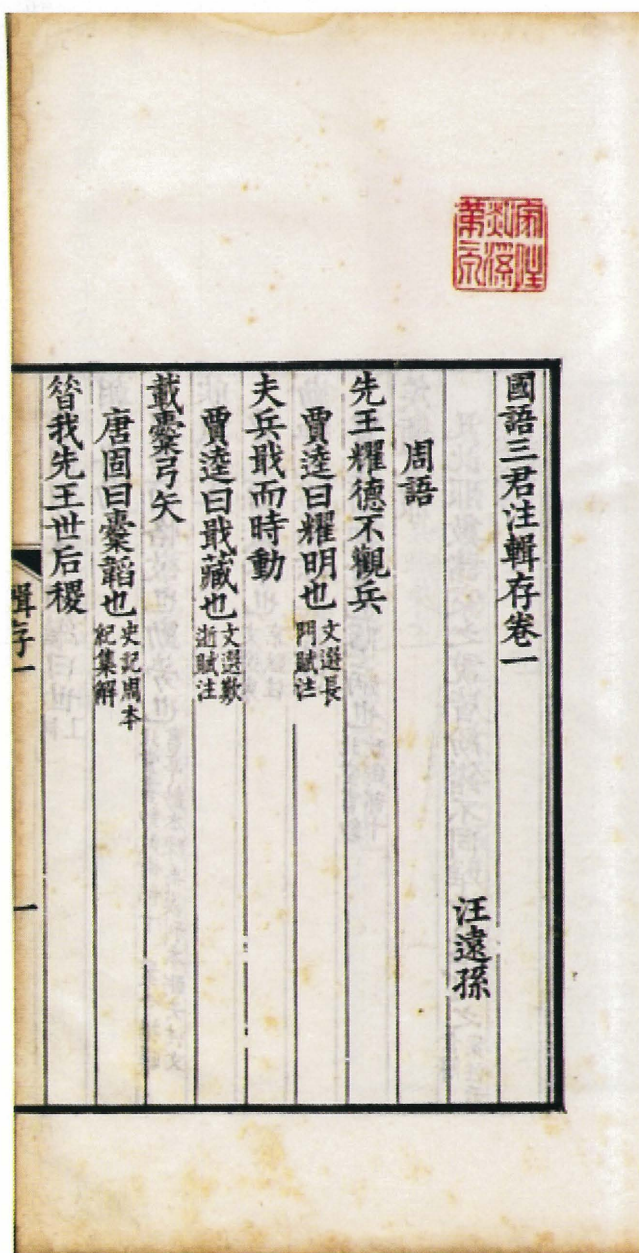 國語三君注輯存卷一
汪遠孫
周語
先王耀德不觀兵
賈逵曰耀明也
文選長
門賦注
夫兵戢而時動
賈逵曰戢藏也
文選歎
逝賦注
載櫜弓矢
唐固曰櫜韜也
史記周本
紀集解
㫺我先王世后稷
輯存一
一